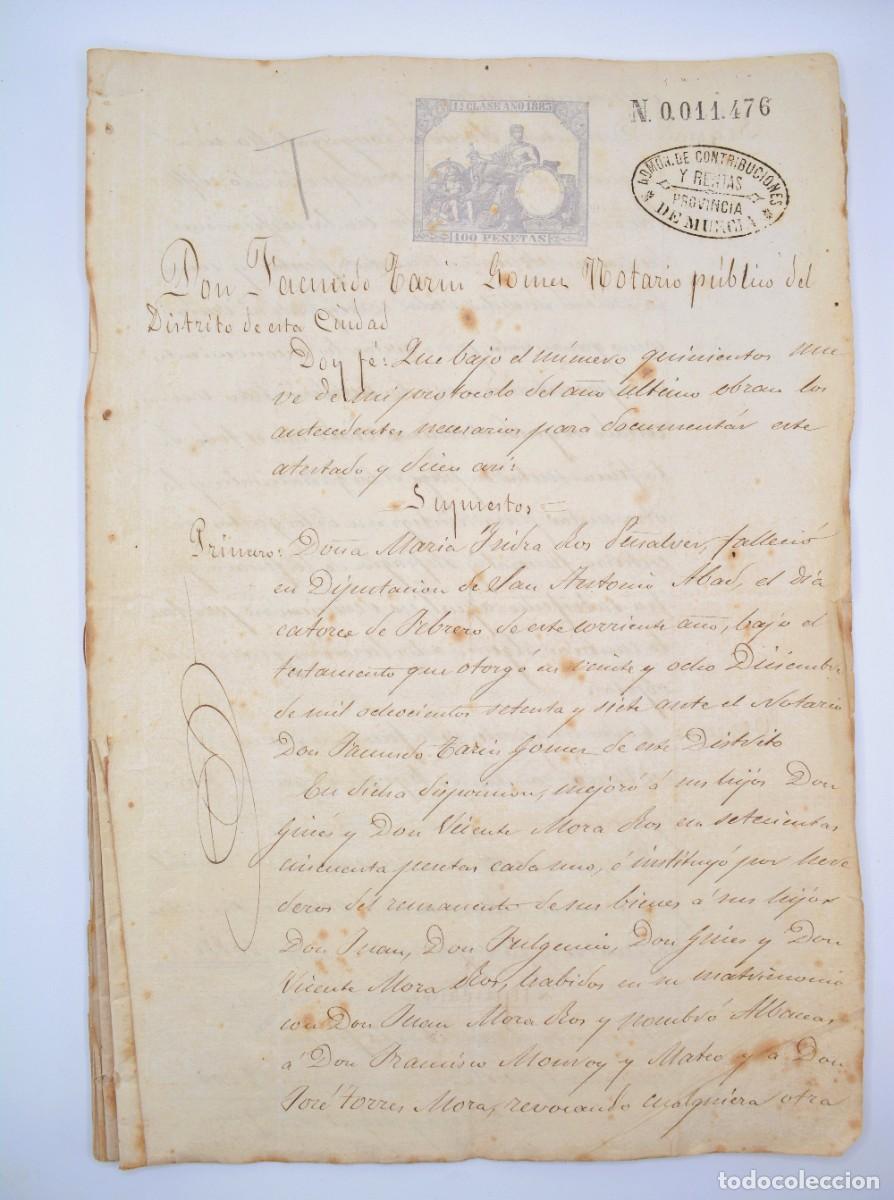 1ª CLASE AÑO 1883
100 PESETAS
N. 0.011.476
ADMON. DE CONTRIBUCIONES
Y RENTAS
PROVINCIA
DE MURCIA
Don Facundo Tarin Gomez Notario público del
Distrito de esta Ciudad
Doy fé: Que bajo el número quinientos nue
ve de mi protocolo del año último obran los
antecedentes necesarios para documentár este
atestado y dicen asi:
Supuestos=
Primero: Doña Maria Isidra Ros Peñalver, falleció
en Diputacion de San Antonio Abad, el dia
catorce de Febrero de este corriente año, bajo el
testamento que otorgó en veinte y ocho Diciembre
de mil ochocientos setenta y siete ante el Notario
Don Facundo Tarin Gomez de este Distrito
En dicha disposicion, mejoró á sus hijos Don
Ginés y Don Vicente Mora Ros en setecientas
cincuenta pesetas cada uno, é instituyó por here
deros del remanente de sus bienes á sus hijos
Don Juan, Don Fulgencio, Don Ginés y Don
Vicente Mora Ros, habidos en su matrimonio
con Don Juan Mora Ros y nombró Albaceas
á Don Francisco Monroy y Mateo y á Don
José Torres Mora, revocando cualquiera otra
todocoleccion